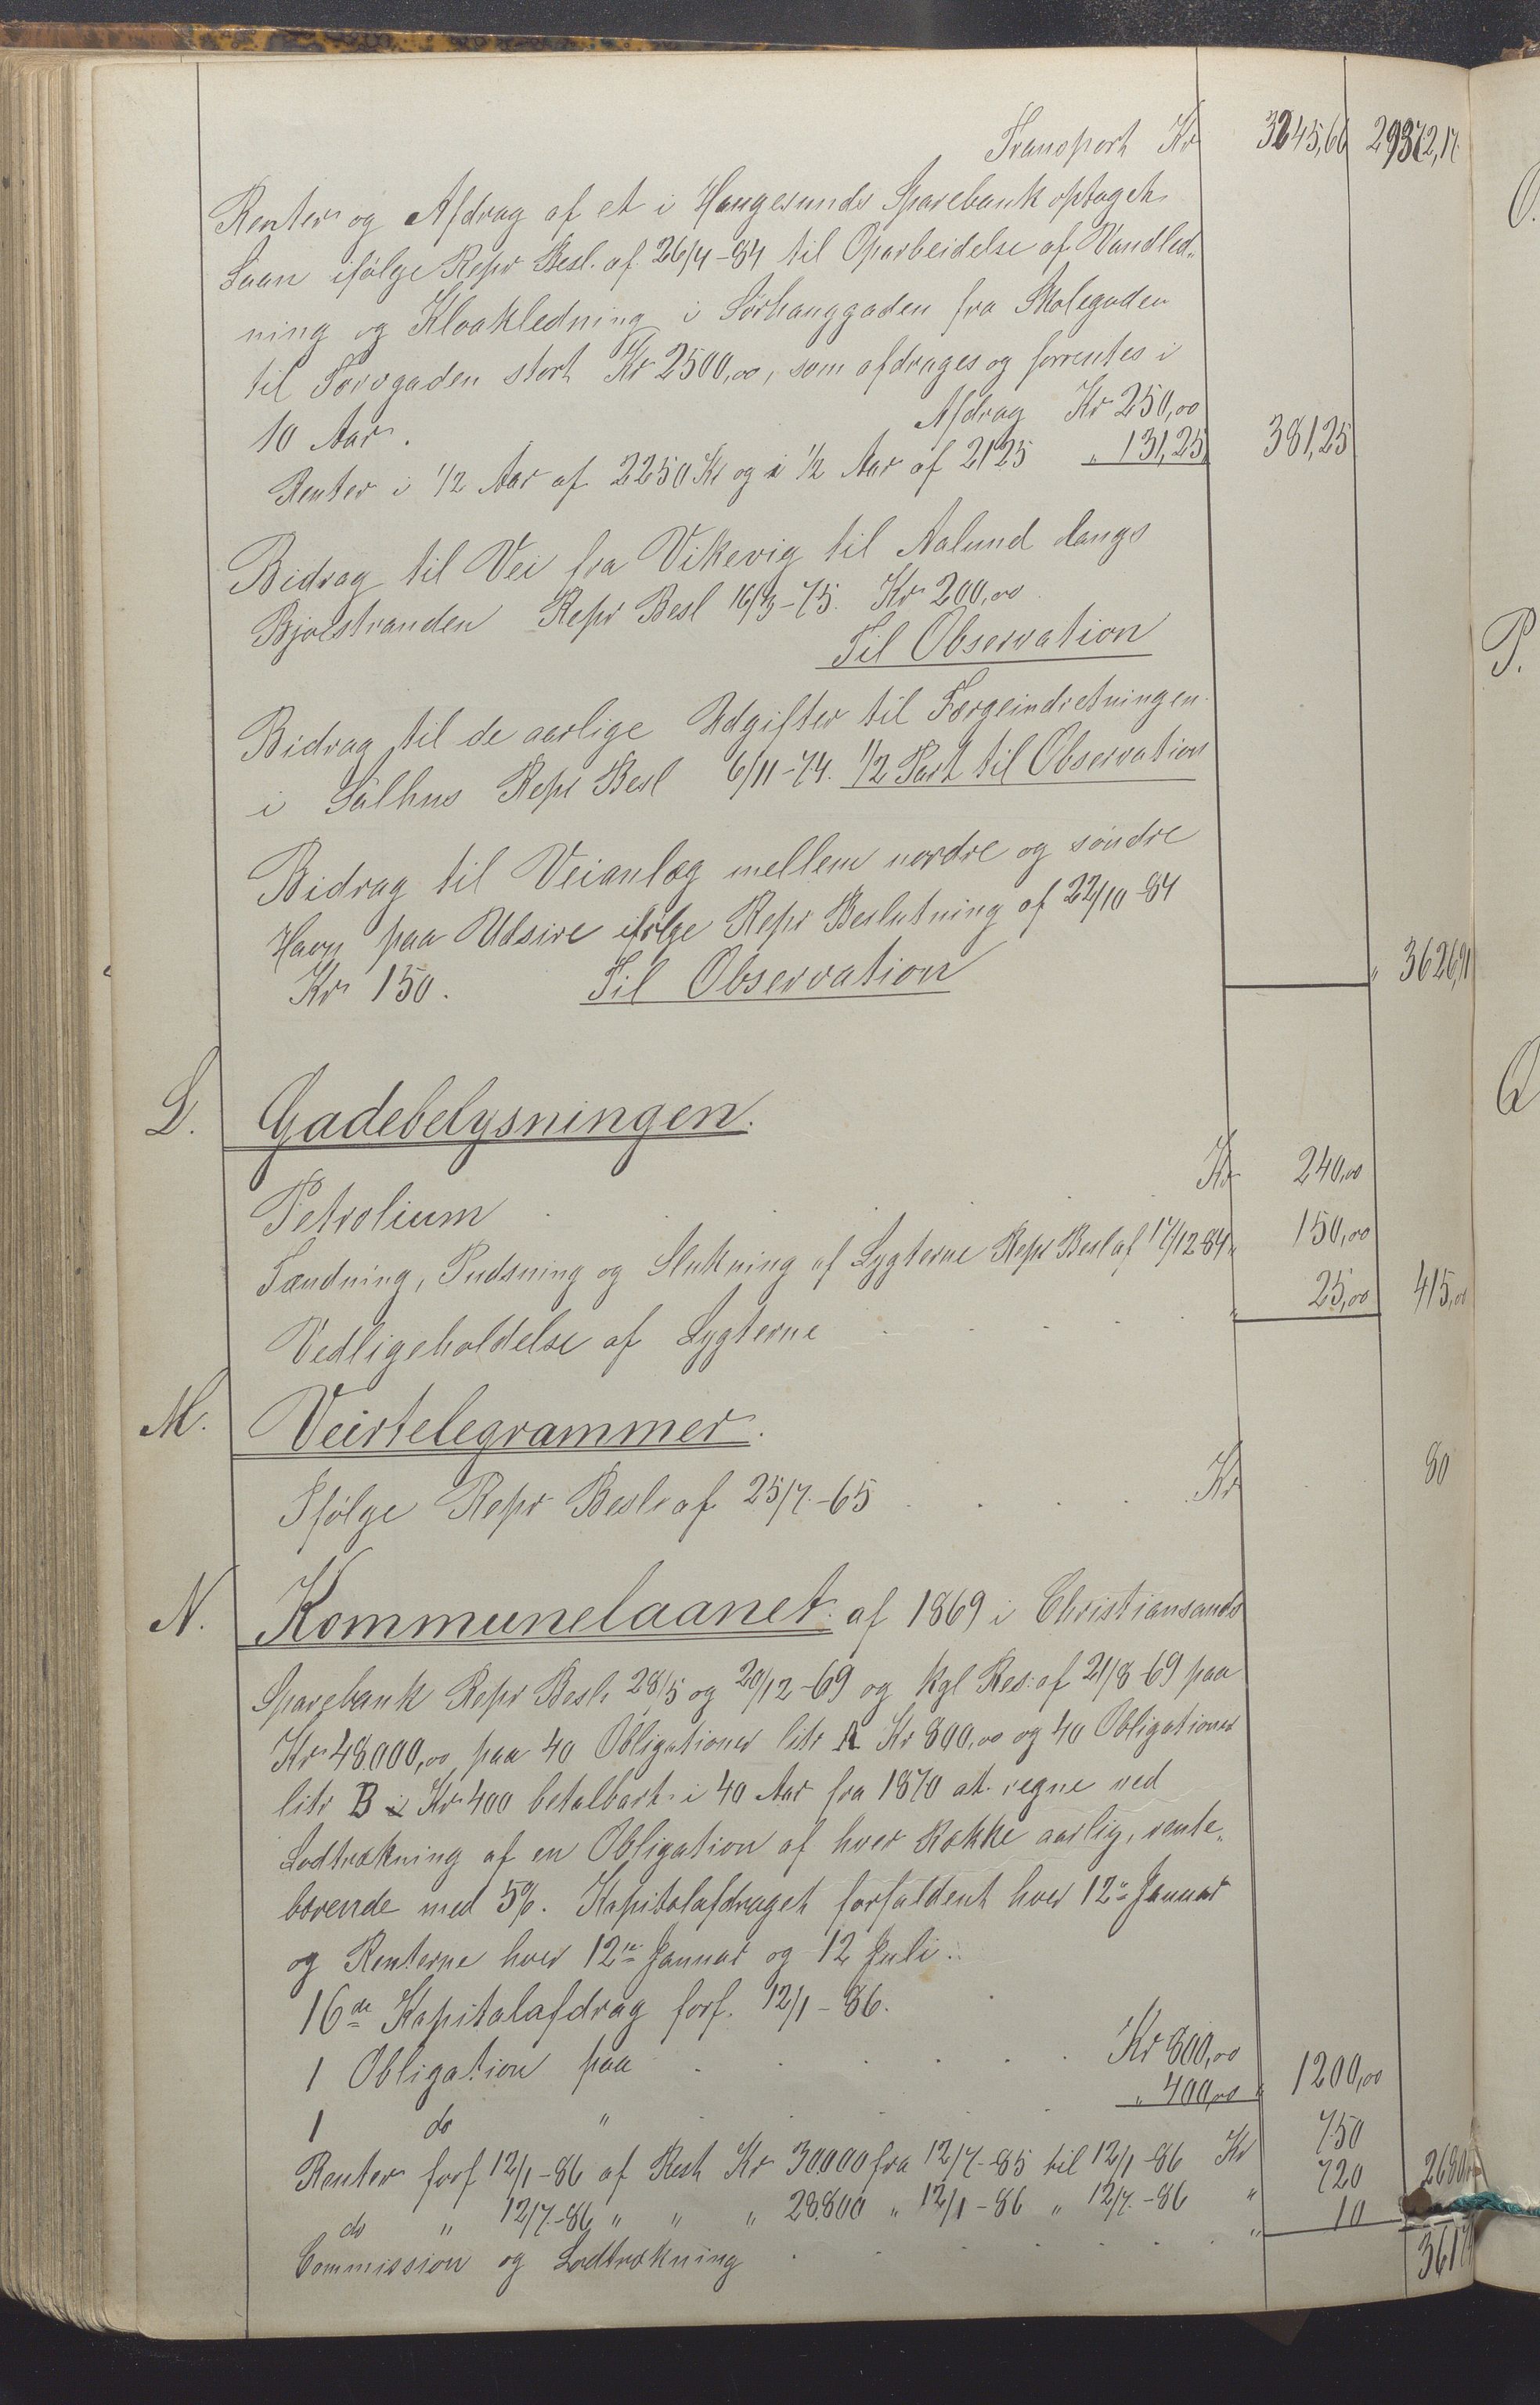 Transport Kr 3245,66 29372,17
Renter og Afdrag af et i Haugesunds Sparebank optaget
Laan ifølge Repr Besl. af 26/4-84 til Oparbeidelse af Vandled„
ning og Kloakledning i Sørhauggaden fra Skolegaden
til Torvgaden stort Kr 2500,00, som afdrages og forrentes i
10 Aar. Afdrag Kr 250,00
Renter i 1/2 Aar af 2250 Kr og i 1/2 Aar af 2125 „ 131,25 381,25
Bidrag til Vei fra Vikevig til Aalund langs
Bjoestranden Repr Besl 16/3-75. Kr 200,00.
Til Observation
Bidrag til de aarlige Udgifter til Færgeindretningen
i Salhus Repr Besl 6/11-74. 1/2 Part til Observation
Bidrag til Veianlæg mellem nordre og søndre
Havn paa Udsire ifølge Repr Beslutning af 22/10-84
Kr 150. Til Observation „ 3626,91
L. Gadebelysningen.
Petrolium Kr 240,00
Tændning, Pudsning og Slukning af Lygterne Repr Besl af 17/12 84 „ 150,00
Vedligeholdelse af Lygterne „ 25,00 415,00
M. Veirtelegrammer.
Ifølge Repr Besl af 25/7.-65 Kr 80
N. Kommunelaanet af 1869 i Christiansands
Sparebank Repr Besl. 28/5 og 20/12-69 og kgl Res: af 21/8-69 paa
Kr 48.000,00 paa 40 Obligationer litr A Kr 800,00 og 40 Obligationer
litr B Kr 400 betalbart i 40 Aar fra 1870 at regne ved
Lodtrækning af en Obligation af hver Række aarlig, rente„
bærende med 5%. Kapitalafdraget forfaldent hver 12te Januar
og Renterne hver 12te Januar og 12 Juli.
16de Kapitalafdrag forf. 12/1-86.
1 Obligation paa Kr 800,00
1 do „ „ 400,00 „ 1200,00
Renter forf 12/1-86 af Rest Kr 30.000 fra 12/7.-85 til 12/1-86 Kr 750
do „ 12/7.-86 „ „ „ 28.800 „ 12/1-86 „ 12/7.-86 „ 720
Commission og Lodtrækning „ 10 2680,00